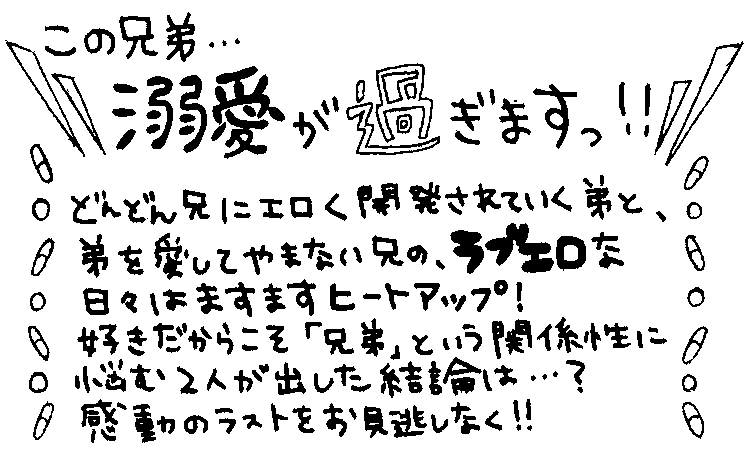 この兄弟…
溺愛が過ぎますっ!!
どんどん兄にエロく開発されていく弟と、
弟を愛してやまない兄の、ラブエロな
日々はますますヒートアップ!
好きだからこそ「兄弟」という関係性に
悩む2人が出した結論は…?
感動のラストをお見逃しなく!!